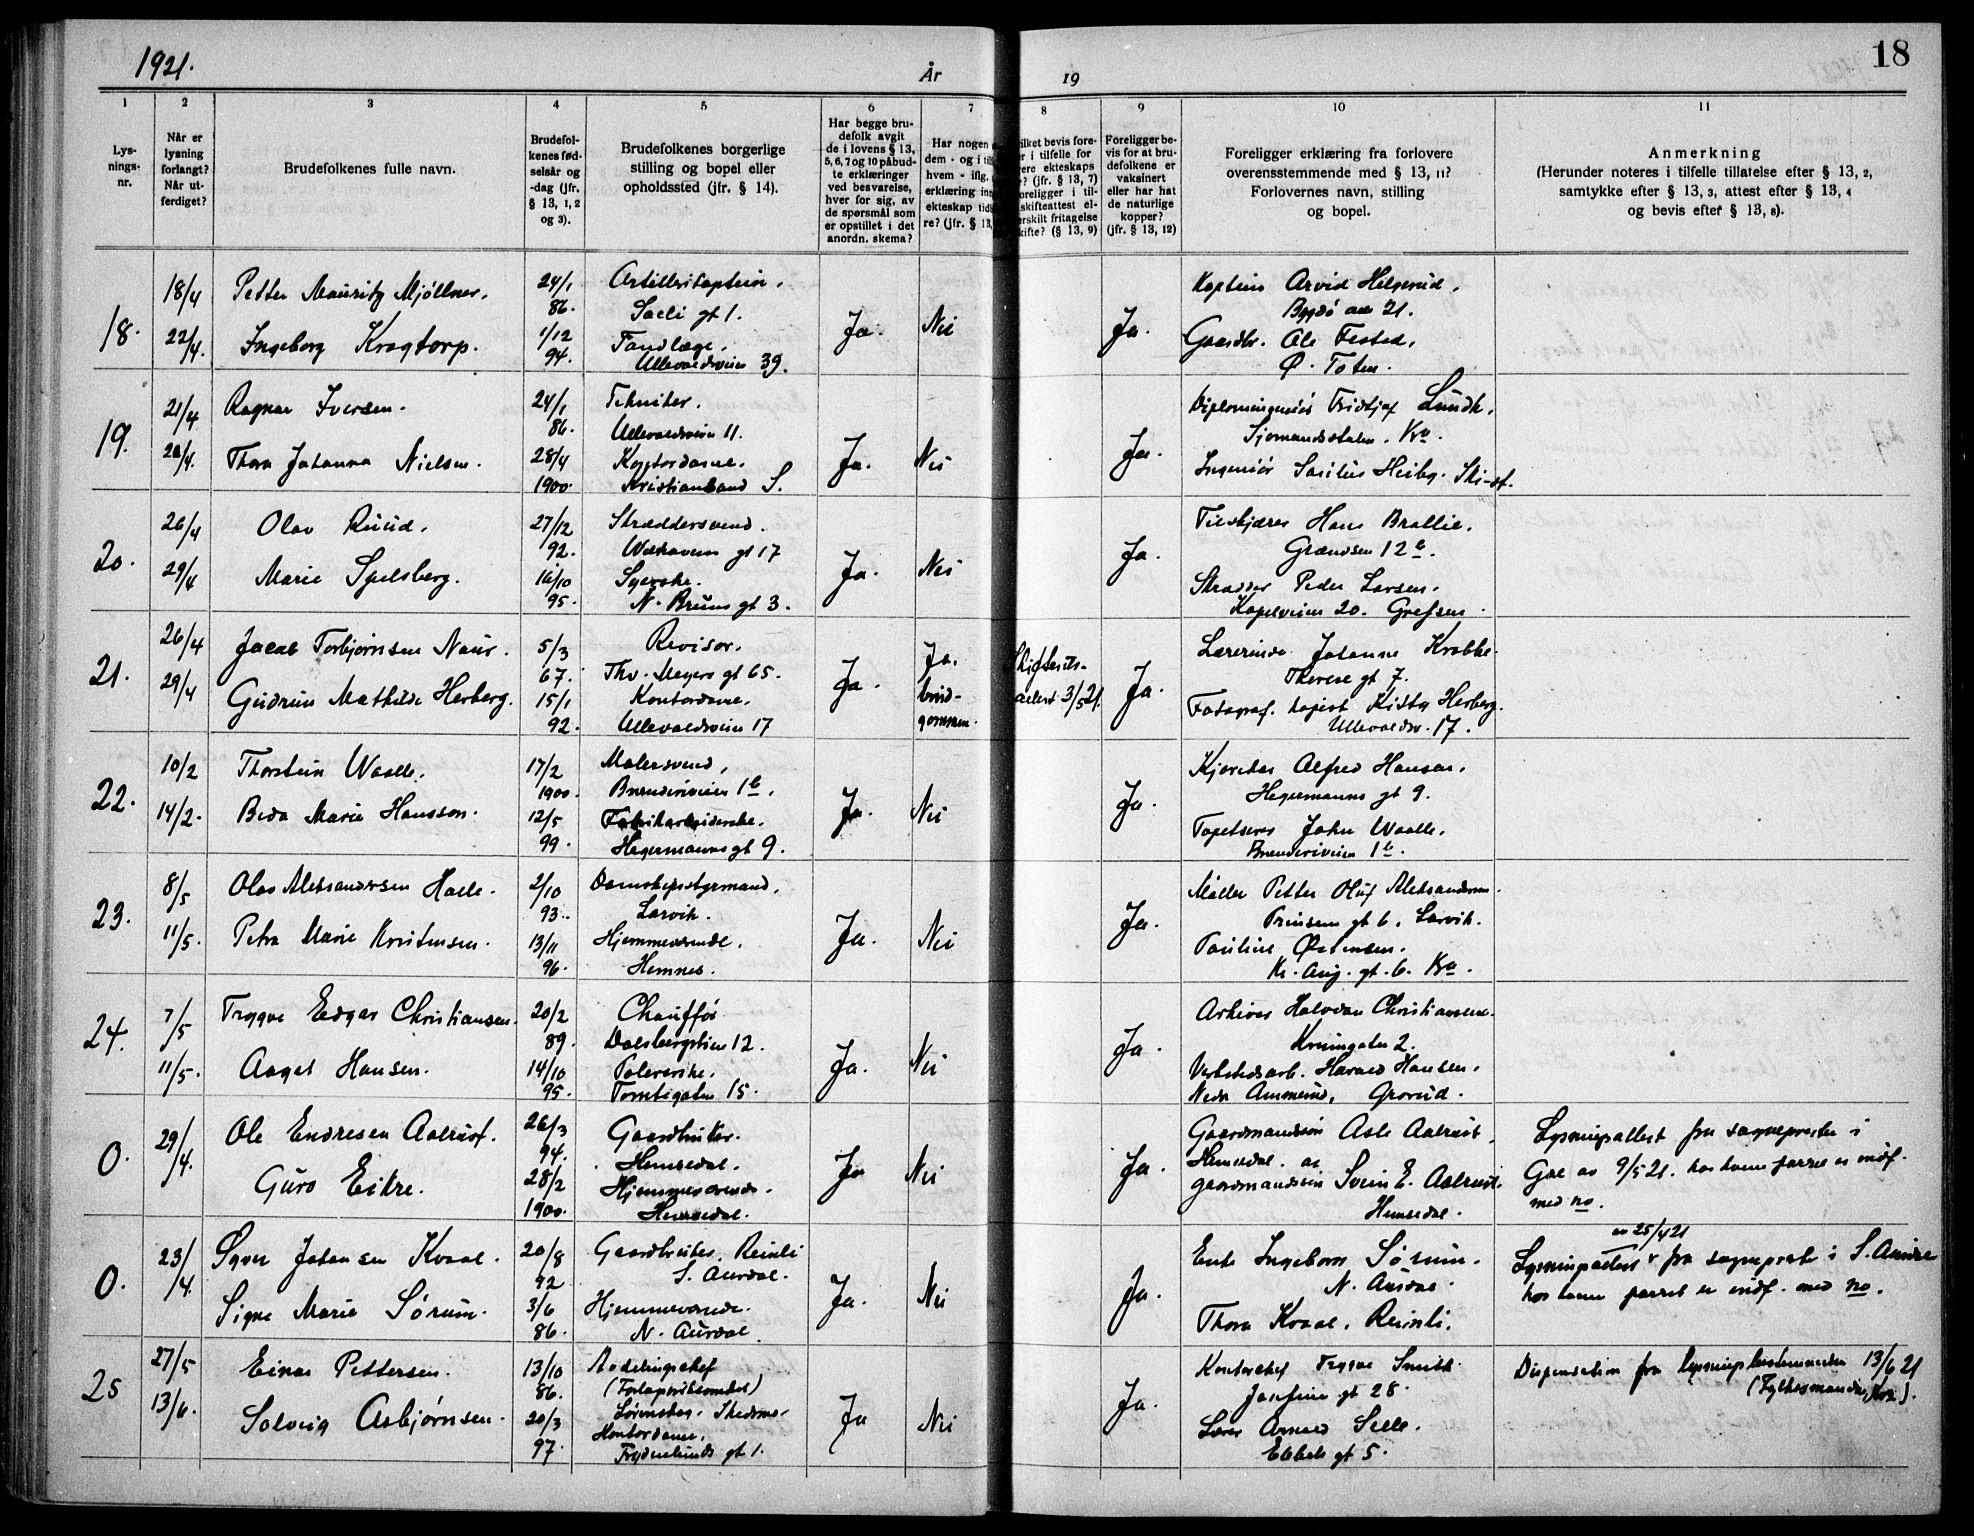 1921.
År
19
18
1
2
3
4
5
6
7
8
9
10
11
Lys-
nings-
nr.
Når er
lysning
forlangt?
Når ut-
ferdiget?
Brudefolkenes fulle navn.
Brudefol-
kenes fød-
selsår og
-dag (jfr.
§ 13, 1, 2
og 3).
Brudefolkenes borgerlige
stilling og bopel eller
opholdssted (jfr. § 14).
Har begge bru-
defolk avgit
de i lovens § 13,
5, 6, 7 og 10 påbud-
te erklæringer
ved besvarelse,
hver for sig, av
de spørsmål som
er opstillet i det
anordn. skema?
Har nogen
dem - og i
hvem - iflg.
erklæring
ekteskap
re? (jfr. § 13,
bevis fore-
i tilfelle for
ekteskaps
? (jfr. § 13, 7)
i til-
skifteattest el-
fritagelse
? (§ 13, 9)
Foreligger be-
vis for at bru-
defolkene er
vaksinert
eller har hat
de naturlige
kopper?
(jfr. § 13, 12)
Foreligger erklæring fra forlovere
overensstemmende med § 13, 11?
Forlovernes navn, stilling
og bopel.
Anmerkning
(Herunder noteres i tilfelle tillatelse efter § 13, 2,
samtykke efter § 13, 3, attest efter § 13, 4
og bevis efter § 13, 8).
18.
18/4
22/4.
Petter Mauritz Mjöllner.
Ingeborg Kragtorp.
24/1
86.
1/12
94.
gt 1.
Tandlæge.
Ullevaldsveien 39.
Ja.
Nei
Ja.
Kaptein Arvid Helgerud,
Bygdø 21.
Gaardbr. Ole
Ø. Toten.
19.
21/4
Ragnar Iversen.
Thora Johanna Nielsen.
24/1
86.
28/4
1900.
Tekniker.
Ullevaldsveien 11.
Kontordame.
Kristiansand S.
Ja.
Nei
Ja.
Diplomingeniør Fridtjof Lundh,
Sjømandsskolen. Kra.
Ingeniør Heiby.
20.
26/4
29/4
Olav Ruud.
Marie Spelsberg.
27/12
92.
16/10
95.
Skræddersvend.
Welhavens gt 17
Syerske.
N. Bruns gt 3.
Ja.
Nei
Ja.
Tilskjærer Hans
Grændsen 12 b.
Peder Larsen.
Kapelveien 20. Grefsen.
21.
26/4
29/4
Jacob Torbjørnsen Naur.
Gudrun Mathilde Herberg.
5/3
67.
15/1
92.
Revisor.
Thv. Meyers gt 65.
Kontordame.
Ullevaldsveien 17
Ja.
Ja,
brud-
gommen.
3/5 21.
Ja.
Lærerinde Johanne Krabbe.
Therese gt 7.
Fotograf. Kitty Herberg.
Ullevaldsv. 17.
22.
10/2
14/2.
Thorstein Waalle.
Beda Marie Hansson.
17/2
1900.
12/5
99.
Malersvend,
Brenderiveien 1 b.
Fabrikarbeiderske.
Hegermanns gt 9.
Ja.
Nei
Ja.
Alfred Hansen.
Hegermanns gt 9.
Tapetserer John Waalle.
Brenderiveien 1 b.
23.
8/5
11/5.
Olav Aleksandersen
Petra Marie Kristensen.
2/10
93.
13/11
96.
Dampskipsstyrmand.
Larvik.
Hjemmeværende.
Hemnes.
Ja.
Nei
Ja.
Møller Petter Oluf Aleksandersen.
Prinsens gt 6. Larvik.
Pauline Østensen.
Kr. Aug. gt. 6. Kra.
24.
7/5
11/5.
Trygve Edgar Christiansen.
Aagot Hansen.
20/2
89.
14/10
95.
Chauffør
Dalsbergstien 12.
Polererske.
Tomtegaten 15.
Ja.
Nei
Ja.
Arkivar Halvdan Christiansen.
2.
Verkstedsarb. Harald Hansen.
Nedr. Ammerud, Grorud.
0.
29/4.
Ole Endresen Aalrust.
Guro Eikre.
26/3
94.
28/2
1900.
Gaardbruker.
Hemsedal.
Hjemmeværende.
Hemsedal.
Ja
Nei
Ja.
Gaardmandssøn Asle Aalrust,
Hemsedal. og
gaardmandssøn Svein E. Aalrust.
Hemsedal.
Lysningsattest fra sogneprest i
Gol av 9/5 21. hos hvem parret er indf.
med no.
0.
23/4.
Syver Johansen Kvaal.
Signe Marie Sørum.
20/8
92
3/6
86.
Gaardbruker, Reinli
S. Aurdal.
Hjemmeværende.
N. Aurdal.
Ja.
Nei
Ja.
Enke Ingeborg Sørum.
N. Aurdal.
Thora Kvaal, Reinli.
av 25/4 21
Lysningsattest fra sogneprest i S. Aurdal
hos hvem parret er indf. med no.
25
27/5
13/6.
Einar Pettersen.
Solveig Asbjørnsen.
13/10
86.
20/3
97.
Avdelingschef
Kontordame.
Frydenlunds gt 1.
Ja
Nei
Ja.
Kontorchef Trygve Smith.
Josefine gt 28.
Lærer Arnold
gt 5.
Dispensation fra lysningsbestemmelsen 13/6 21
(Fylkesmanden, Kra).